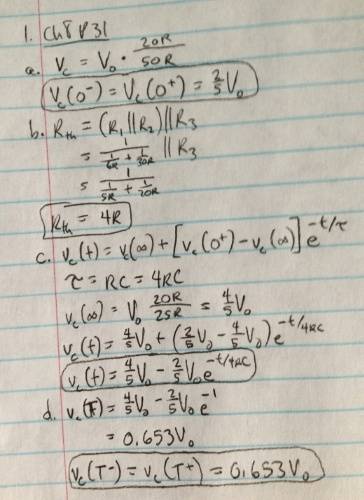 1. Ch8 P31
a. Vc = V₀ · 20R/50R
Vc(0⁻) = Vc(0⁺) = 2/5 V₀
b. Rth = (R₁||R₂)||R₃
= 1/(1/6R + 1/30R) || R₃
= 1/(1/5R + 1/20R)
Rth = 4R
c. vc(t) = vc(∞) + [vc(0⁺) - vc(∞)] e^(-t/τ)
τ = RC = 4RC
vc(∞) = V₀ 20R/25R = 4/5 V₀
vc(t) = 4/5 V₀ + (2/5 V₀ - 4/5 V₀) e^(-t/4RC)
vc(t) = 4/5 V₀ - 2/5 V₀ e^(-t/4RC)
d. vc(T) = 4/5 V₀ - 2/5 V₀ e⁻¹
= 0.653V₀
vc(T⁻) = vc(T⁺) = 0.653V₀